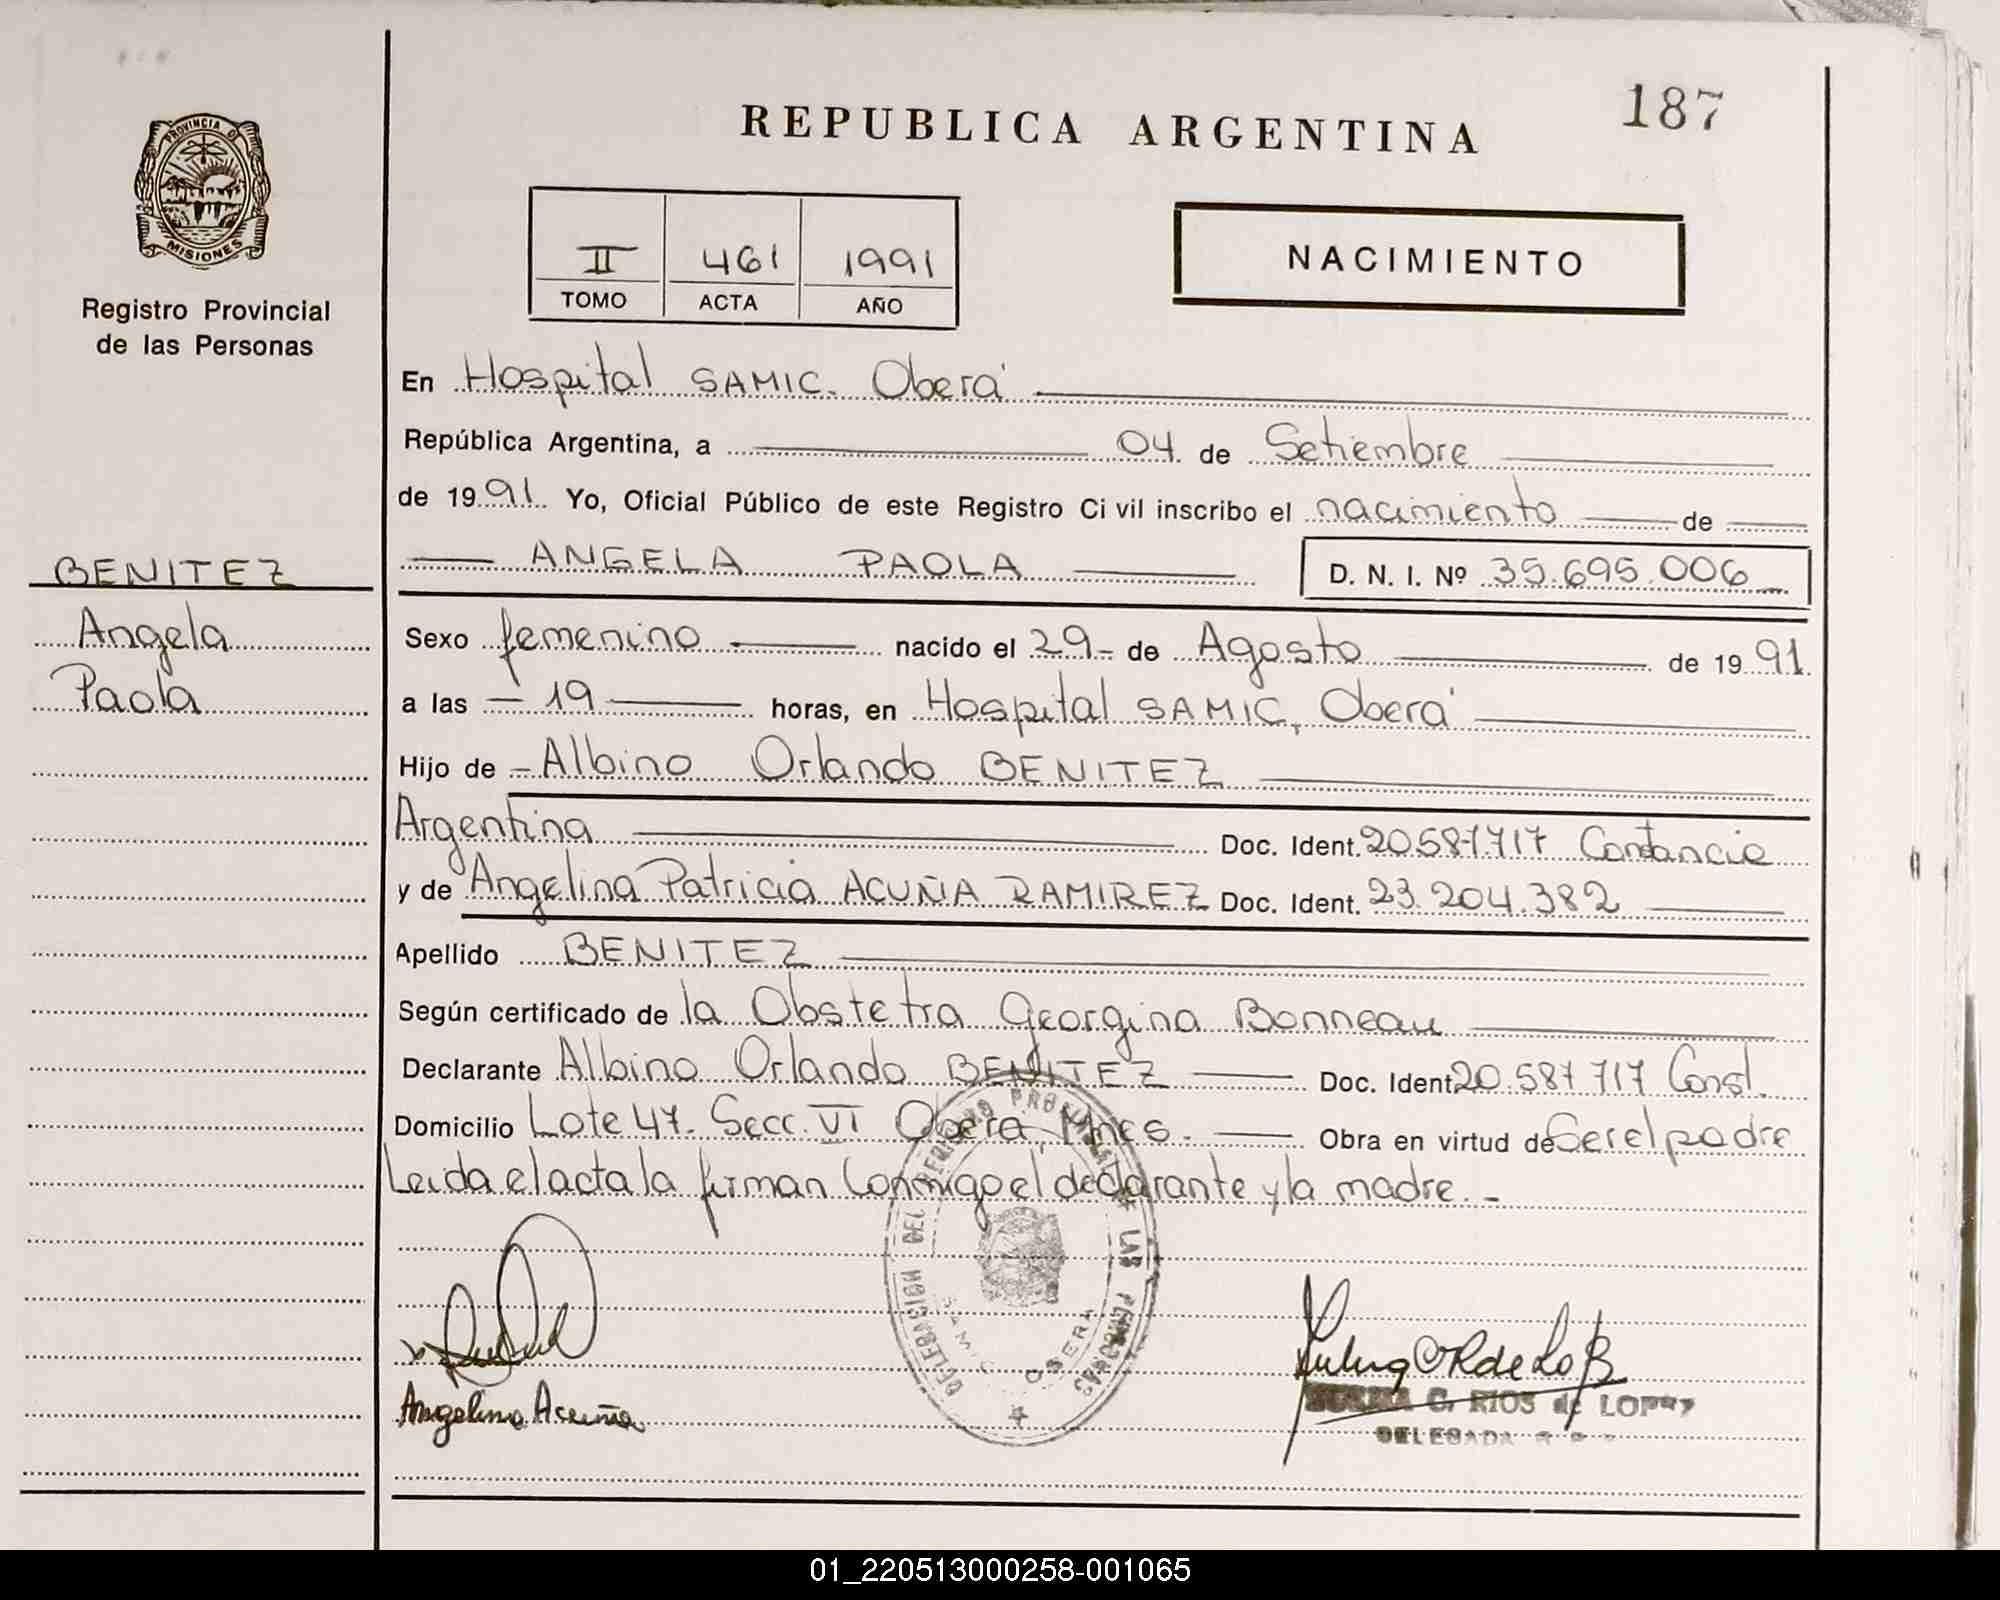 187
REPUBLICA ARGENTINA
PROVINCIA D
MISIONES
Registro Provincial
de las Personas
II 461 1991
TOMO ACTA AÑO
NACIMIENTO
En Hospital SAMIC. Oberá
República Argentina, a 04 de Setiembre
de 1991 Yo, Oficial Público de este Registro Civil inscribo el nacimiento de
ANGELA PAOLA D. N. I. Nº 35.695.006
BENITEZ
Angela
Paola
Sexo femenino nacido el 29 de Agosto de 1991.
a las 19 horas, en Hospital SAMIC, Oberá
Hijo de Albino Orlando BENITEZ
Argentina Doc. Ident. 20.587.717 Contancia
y de Angelina Patricia ACUÑA RAMIREZ Doc. Ident. 23.204.382
Apellido BENITEZ
Según certificado de la Obstetra Georgina Bonneau
Declarante Albino Orlando BENITEZ Doc. Ident. 20.587 717 Const.
Domicilio Lote 47. Secc. VI Oberá, Mnes. Obra en virtud de Ser el padre
Leida el acta la firman Conmigo el declarante y la madre. -
DELEGACION DEL REGISTRO PROVINCIAL DE LAS PERSONAS
SAMIC OBERA
Angelina Acuña
C. RIOS de LOPEZ
DELEGADA
01_220513000258-001065